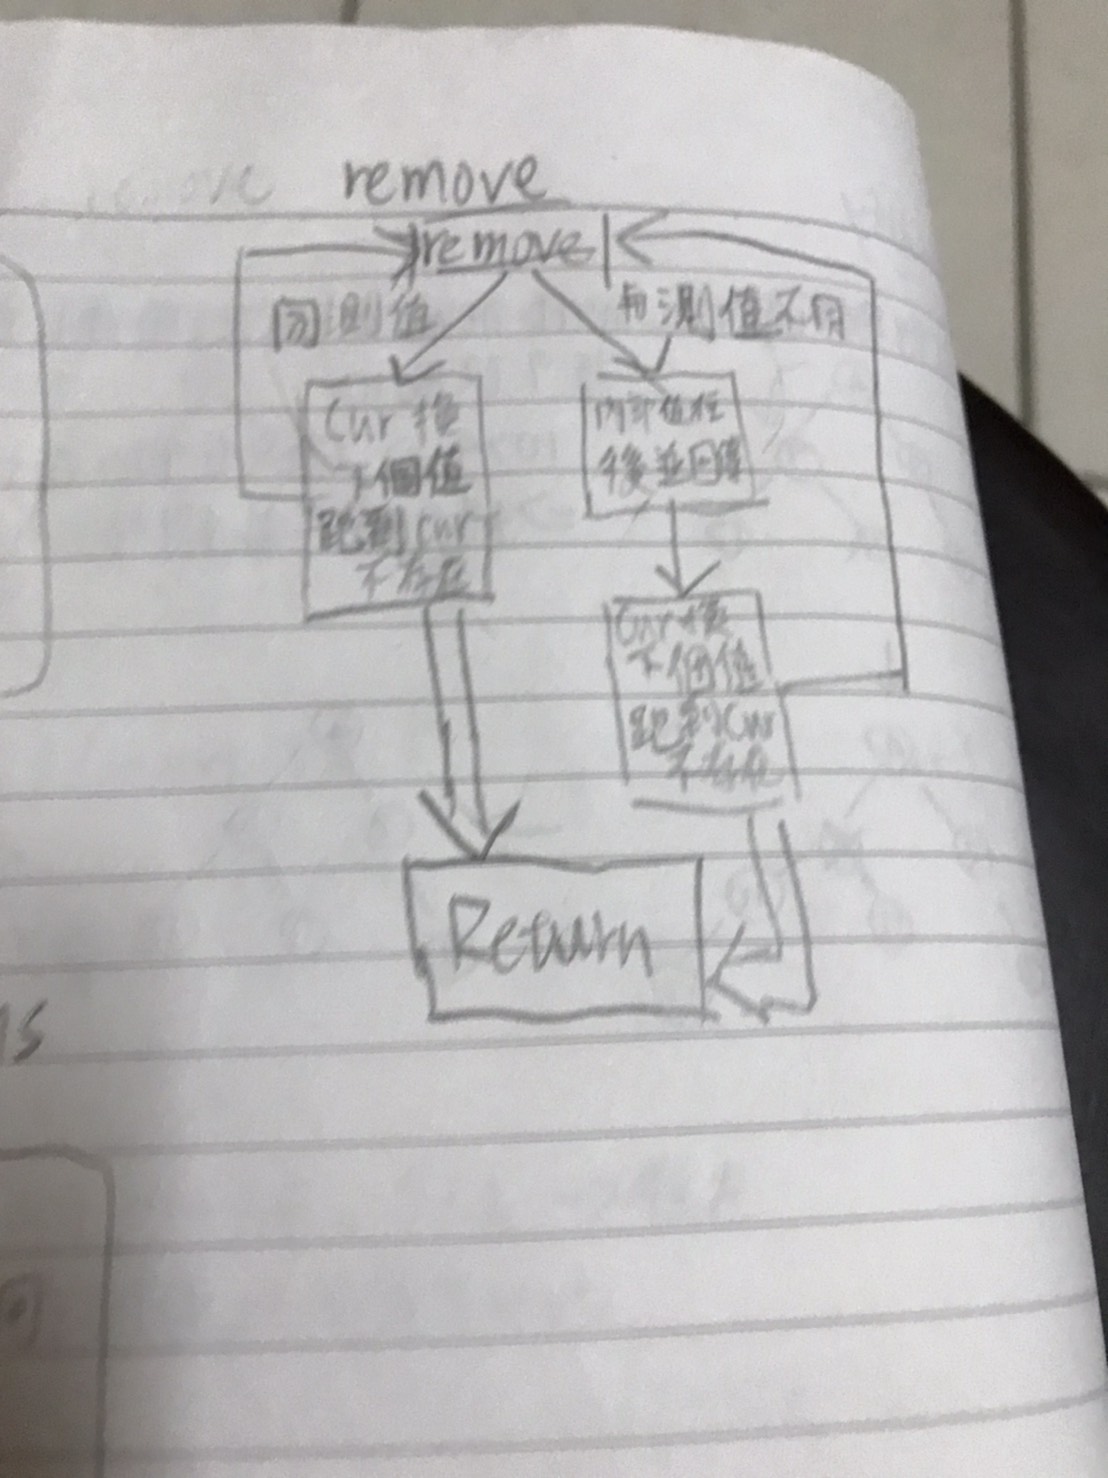 remove
remove
同測值
與測值不同
Cur換
下個值
跑到cur
不存在
內部值往
後並回傳
Cur換
下個值
跑到Cur
不存在
Return